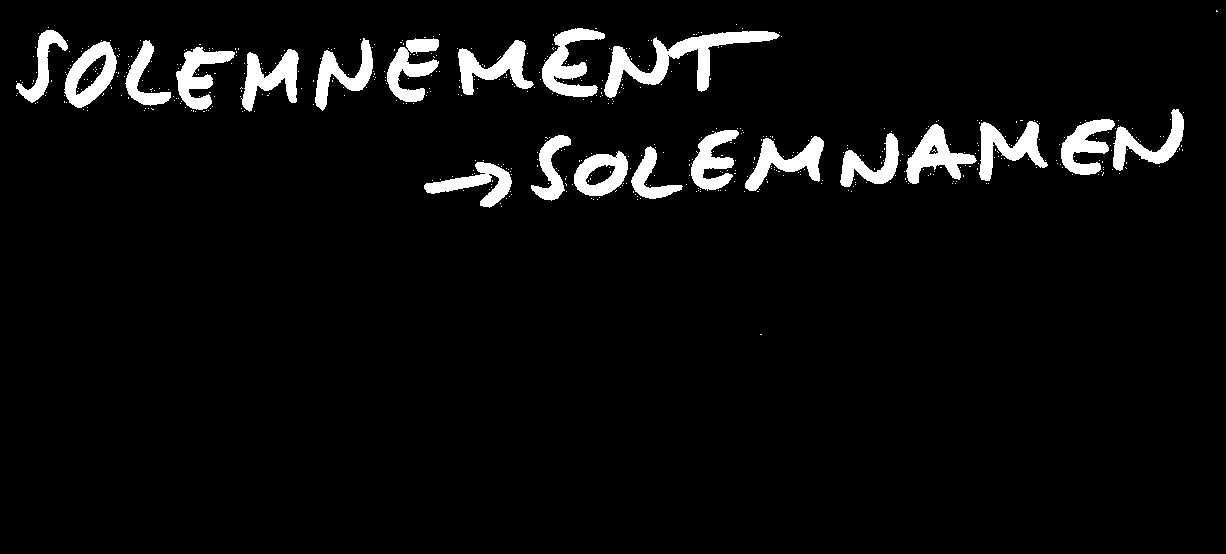 SOLEMNEMENT
→ SOLEMNAMEN